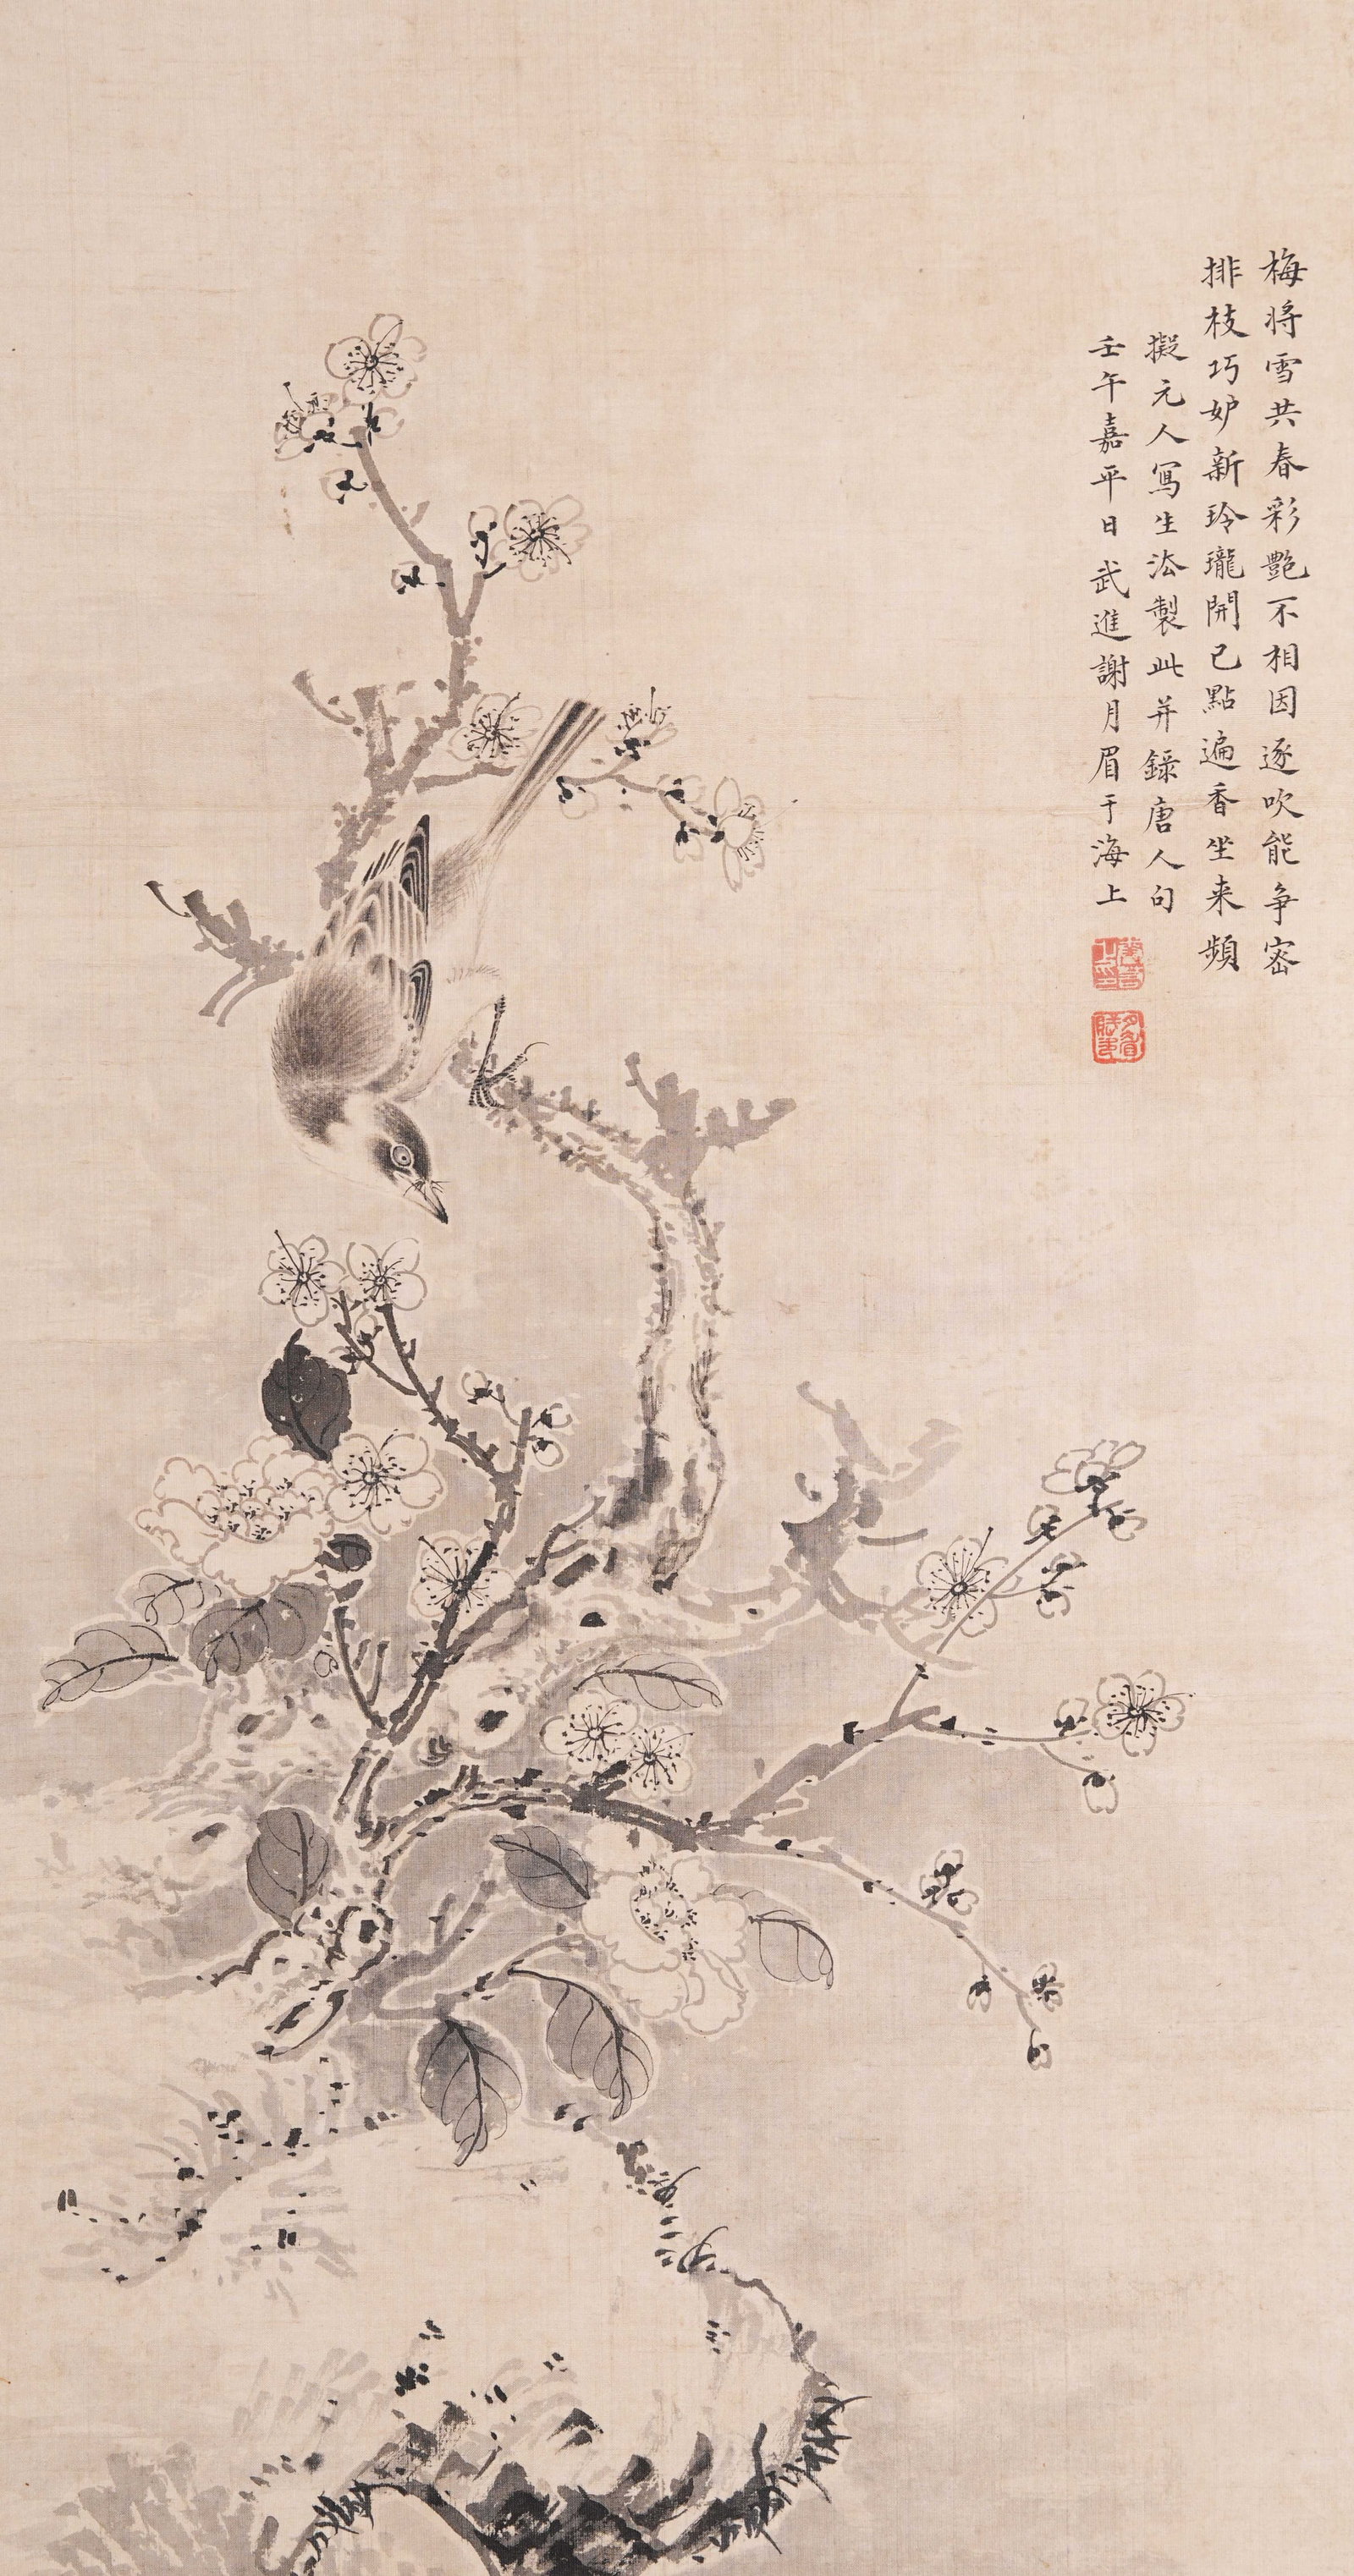 梅将雪共春彩艷不相因逐吹能争密
排枝巧妒新玲瓏開已點遍香坐来頻
擬元人寫生法製此并錄唐人句
壬午嘉平日武進謝月眉于海上